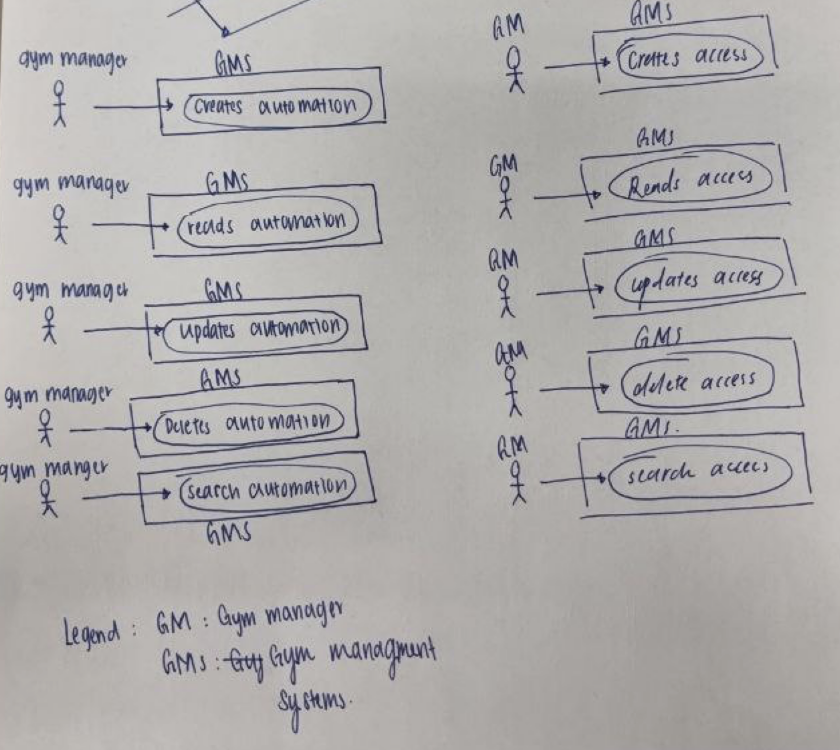 gym manager
GMS
Creates automation
gym manager
GMS
reads automation
gym manager
GMS
updates automation
gym manager
GMS
Deletes automation
gym manger
search automation
GMS
GM
GMS
Creates access
GM
GMS
Reads access
GM
GMS
updates access
GM
GMS
delete access
GM
GMS.
search access
Legend : GM : Gym manager
GMS : Guy Gym managment
systems.